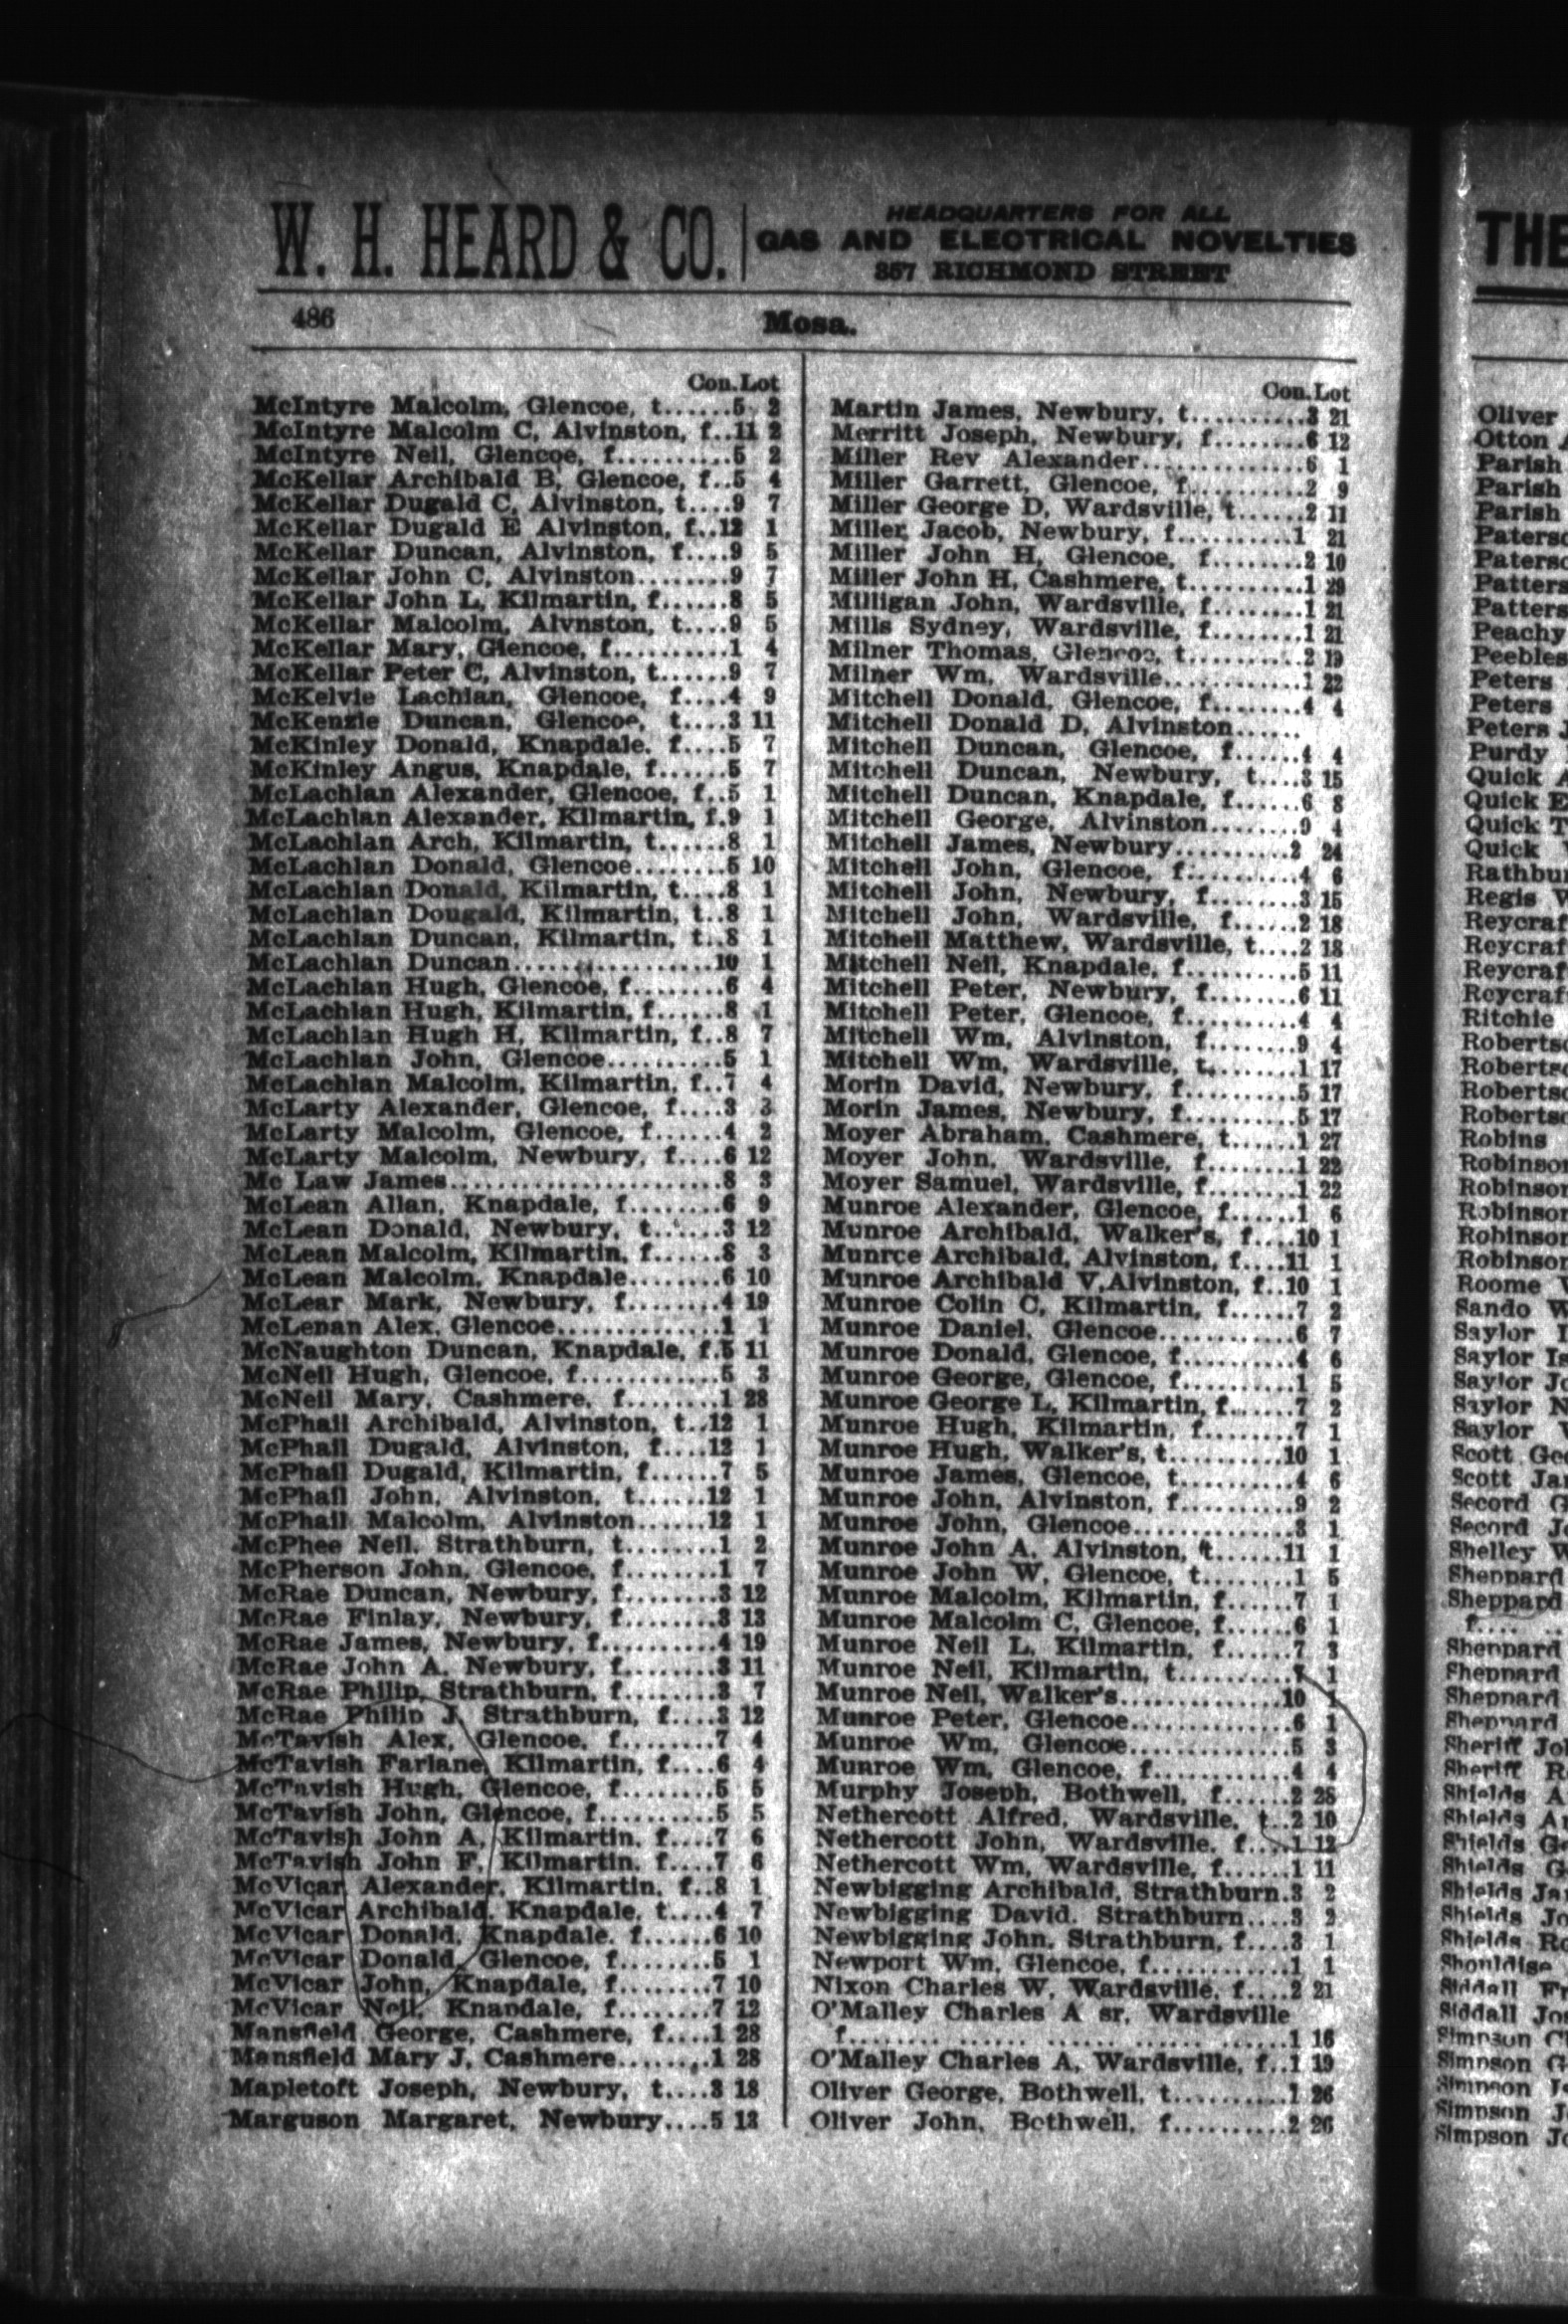 W. H. HEARD & CO.
HEADQUARTERS FOR ALL
GAS AND ELECTRICAL NOVELTIES
357 RICHMOND STREET
486
Mosa.
Con. Lot
McIntyre Malcolm, Glencoe, t......5 2
McIntyre Malcolm C, Alvinston, f..11 2
McIntyre Neil, Glencoe, f..........5 2
McKellar Archibald B, Glencoe, f..5 4
McKellar Dugald C, Alvinston, t....9 7
McKellar Dugald E Alvinston, f..12 1
McKellar Duncan, Alvinston, f....9 5
McKellar John C, Alvinston........9 7
McKellar John L, Kilmartin, f......8 5
McKellar Malcolm, Alvnston, t....9 5
McKellar Mary, Glencoe, f..........1 4
McKellar Peter C, Alvinston, t......9 7
McKelvie Lachlan, Glencoe, f....4 9
McKenzie Duncan, Glencoe, t....3 11
McKinley Donald, Knapdale. f....5 7
McKinley Angus, Knapdale, f......5 7
McLachlan Alexander, Glencoe, f..5 1
McLachlan Alexander, Kilmartin, f.9 1
McLachlan Arch, Kilmartin, t......8 1
McLachlan Donald, Glencoe........5 10
McLachlan Donald, Kilmartin, t....8 1
McLachlan Dougald, Kilmartin, t..8 1
McLachlan Duncan, Kilmartin, t..8 1
McLachlan Duncan..................10 1
McLachlan Hugh, Glencoe, f........6 4
McLachlan Hugh, Kilmartin, f......8 1
McLachlan Hugh H, Kilmartin, f..8 7
McLachlan John, Glencoe..........5 1
McLachlan Malcolm, Kilmartin, f..7 4
McLarty Alexander, Glencoe, f....3 3
McLarty Malcolm, Glencoe, f......4 2
McLarty Malcolm, Newbury, f....6 12
Mc Law James........................8 3
McLean Allan, Knapdale, f........6 9
McLean Donald, Newbury, t......3 12
McLean Malcolm, Kilmartin, f......8 3
McLean Malcolm, Knapdale........6 10
McLear Mark, Newbury, f........4 19
McLenan Alex. Glencoe.............1 1
McNaughton Duncan, Knapdale, f.5 11
McNeil Hugh, Glencoe, f............5 3
McNeil Mary, Cashmere, f........1 28
McPhail Archibald, Alvinston, t..12 1
McPhail Dugald, Alvinston, f....12 1
McPhail Dugald, Kilmartin, f......7 5
McPhail John, Alvinston, t......12 1
McPhail Malcolm, Alvinston......12 1
McPhee Neil. Strathburn, t........1 2
McPherson John, Glencoe, f........1 7
McRae Duncan, Newbury, f........3 12
McRae Finlay, Newbury, f........3 13
McRae James, Newbury, f..........4 19
McRae John A. Newbury, f........3 11
McRae Philip, Strathburn, f........3 7
McRae Philip J. Strathburn, f....3 12
McTavish Alex, Glencoe, f........7 4
McTavish Farlane, Kilmartin, f....6 4
McTavish Hugh, Glencoe, f........5 5
McTavish John, Glencoe, f..........5 5
McTavish John A, Kilmartin. f....7 6
McTavish John F, Kilmartin. f....7 6
McVicar Alexander, Kilmartin, f..8 1
McVicar Archibald. Knapdale. t....4 7
McVicar Donald, Knapdale. f......6 10
McVicar Donald, Glencoe, f........5 1
McVicar John, Knapdale, f........7 10
McVicar Neil, Knapdale, f........7 12
Mansfield George, Cashmere, f....1 28
Mansfield Mary J, Cashmere........1 28
Mapletoft Joseph, Newbury, t....3 18
Marguson Margaret, Newbury....5 13
Con. Lot
Martin James, Newbury, t..........3 21
Merritt Joseph, Newbury, f........6 12
Miller Rev Alexander..............6 1
Miller Garrett, Glencoe, f..........2 9
Miller George D, Wardsville, t......2 11
Miller Jacob, Newbury, f..........1 21
Miller John H, Glencoe, f........2 10
Miller John H, Cashmere, t..........1 29
Milligan John, Wardsville, f........1 21
Mills Sydney, Wardsville, f........1 21
Milner Thomas, Glencoe, t..........2 19
Milner Wm, Wardsville............1 22
Mitchell Donald, Glencoe, f........4 4
Mitchell Donald D, Alvinston......
Mitchell Duncan, Glencoe, f......4 4
Mitchell Duncan, Newbury, t....3 15
Mitchell Duncan, Knapdale, f......6 8
Mitchell George, Alvinston........9 4
Mitchell James, Newbury..........2 24
Mitchell John, Glencoe, f..........4 6
Mitchell John, Newbury, f........3 15
Mitchell John, Wardsville, f......2 18
Mitchell Matthew, Wardsville, t....2 18
Mitchell Neil, Knapdale, f..........5 11
Mitchell Peter, Newbury, f........6 11
Mitchell Peter, Glencoe, f..........4 4
Mitchell Wm, Alvinston, f........9 4
Mitchell Wm, Wardsville, t........1 17
Morin David, Newbury, f..........5 17
Morin James, Newbury, f..........5 17
Moyer Abraham, Cashmere, t......1 27
Moyer John, Wardsville, f........1 22
Moyer Samuel, Wardsville, f........1 22
Munroe Alexander, Glencoe, f......1 6
Munroe Archibald, Walker's, f....10 1
Munrce Archibald, Alvinston, f....11 1
Munroe Archibald V,Alvinston, f..10 1
Munroe Colin C, Kilmartin, f......7 2
Munroe Daniel, Glencoe............6 7
Munroe Donald, Glencoe, f..........4 6
Munroe George, Glencoe, f..........1 5
Munroe George L, Kilmartin, f......7 2
Munroe Hugh, Kilmartin, f........7 1
Munroe Hugh, Walker's, t..........10 1
Munroe James, Glencoe, t..........4 6
Munroe John, Alvinston, f..........9 2
Munroe John, Glencoe..............3 1
Munroe John A, Alvinston, t......11 1
Munroe John W, Glencoe, t........1 5
Munroe Malcolm, Kilmartin, f......7 1
Munroe Malcolm C, Glencoe, f......6 1
Munroe Neil L, Kilmartin, f......7 3
Munroe Neil, Kilmartin, t..........7 1
Munroe Neil, Walker's..............10 1
Munroe Peter, Glencoe..............6 1
Munroe Wm, Glencoe..............5 3
Munroe Wm, Glencoe, f............4 4
Murphy Joseph, Bothwell, f......2 25
Nethercott Alfred, Wardsville, t..2 10
Nethercott John, Wardsville, f....1 12
Nethercott Wm, Wardsville, f......1 11
Newbigging Archibald, Strathburn.3 2
Newbigging David. Strathburn....3 2
Newbigging John. Strathburn, f....3 1
Newport Wm, Glencoe, f............1 1
Nixon Charles W, Wardsville, f....2 21
O'Malley Charles A sr, Wardsville
f................................1 16
O'Malley Charles A, Wardsville, f..1 19
Oliver George, Bothwell, t..........1 26
Oliver John, Bothwell, f..........2 26
THE
Oliver
Otton
Parish
Parish
Parish
Peachy
Peebles
Peters
Peters
Peters J
Purdy
Quick
Quick
Quick
Quick
Ritchie
Robins
Roome
Sando W
Saylor
Saylor Is
Saylor Jo
Saylor N
Saylor
Scott Geo
Scott Jam
Secord G
Secord J
Shelley W
Sheppard
Sheppard
f....
Sheppard
Sheppard
Sheppard
Sheppard
Sheriff Jo
Sheriff R
Shields A
Shields A
Shields G
Shields G
Shields Ja
Shields Jo
Shields Ro
Shouldise
Siddall
Siddall Jo
Simpson
Simpson
Simpson
Simpson J
Simpson Jo